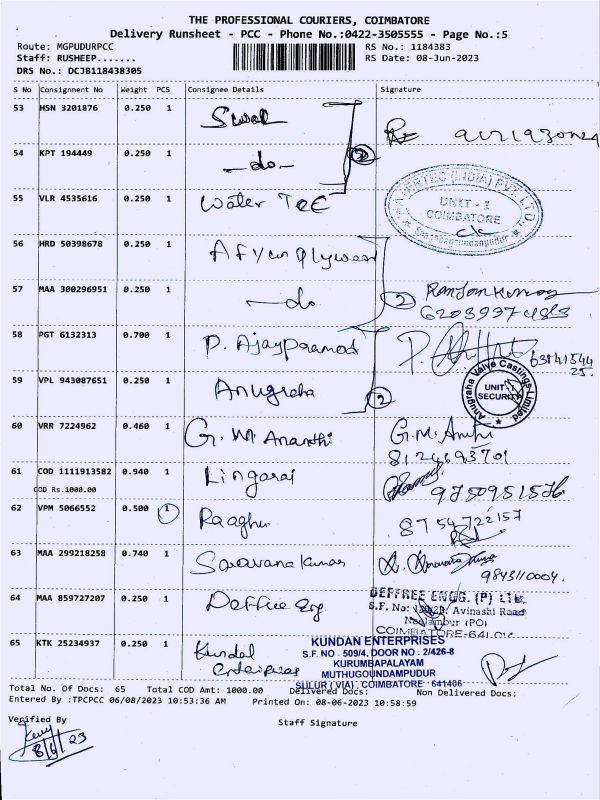 THE PROFESSIONAL COURIERS, COIMBATORE
Delivery Runsheet - PCC - Phone No.:0422-3505555 - Page No.:5
Route: MGPUDURPCC RS No.: 1184383
Staff: RUSHEEP....... RS Date: 08-Jun-2023
DRS No.: DCJB118438305
S No Consignment No Weight PCS Consignee Details Signature
53 HSN 3201876 0.250 1
54 KPT 194449 0.250 1 -do-
55 VLR 4535616 0.250 1 Water Tec
(INDIA) PVT. LTD.
UNIT - I
COIMBATORE
56 HRD 50398678 0.250 1
57 MAA 300296951 0.250 1 -do 2
58 PGT 6132313 0.700 1 P. Ajayparamod
59 VPL 943087651 0.250 1 Anugraha 2
Anugraha Valve Castings Limited
UNIT-I
SECURITY
60 VRR 7224962 0.460 1 G.M Ananthi G.M.
61 COD 1111913582 0.940 1 Lingaraj
COD Rs.1000.00
62 VPM 5066552 0.500 1 Raaghu 8754722157
63 MAA 299218258 0.740 1 Saravana Kumar
9843110004.
64 MAA 859727207 0.250 1 Deffree Eng
DEFFREE ENGG. (P) LTD.
S.F. No: Avinashi Road
Neelambur (PO)
COIMBATORE-641
65 KTK 25234937 0.250 1 Kundal Enterprises
KUNDAN ENTERPRISES
S.F. NO - 509/4, DOOR NO : 2/426-8
KURUMBAPALAYAM
MUTHUGOUNDAMPUDUR
SULUR (VIA), COIMBATORE - 641406
Total No. Of Docs: 65 Total COD Amt: 1000.00 Delivered Docs: Non Delivered Docs:
Entered By :TPCPCC 06/08/2023 10:53:36 AM Printed On: 08-06-2023 10:58:59
Verified By Staff Signature
8/6/23